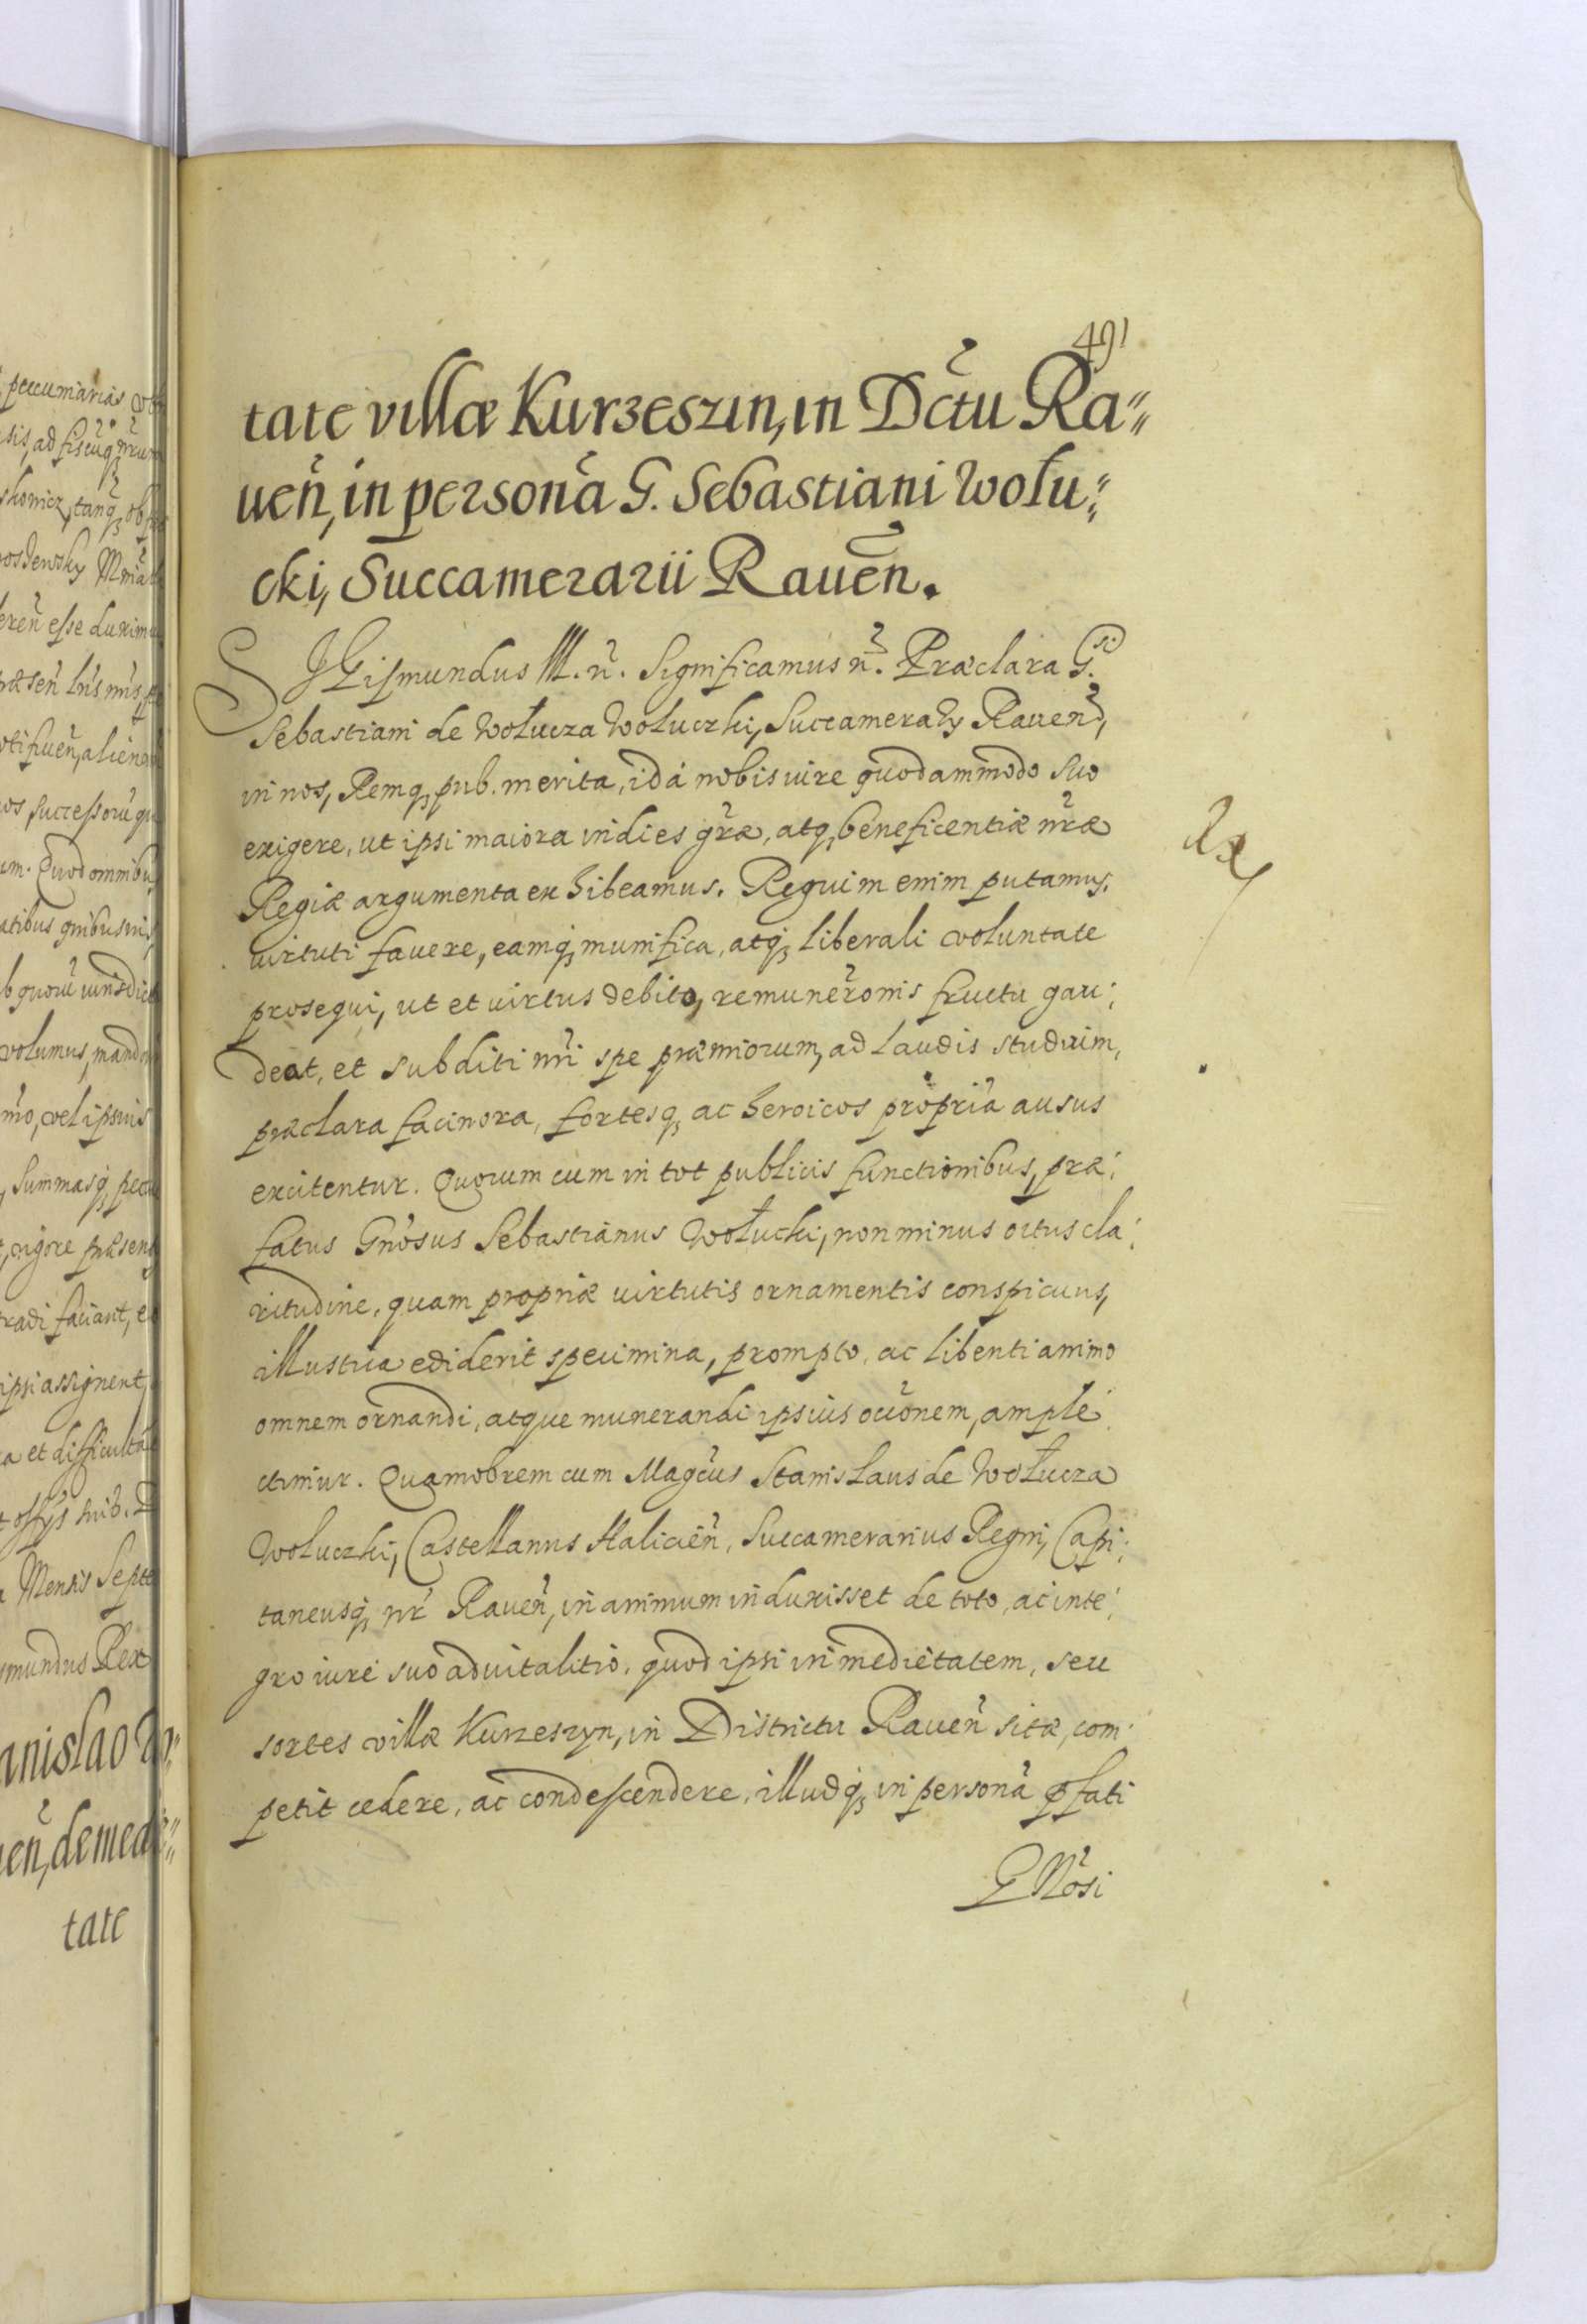 491
tate villæ Kurzeszin, in Dctu Ra〃
uen, in persona G. Sebastiani Wołu〃
cki, Succamerarii Rauen.
SIGismundus III. n. Significamus n. Præclara G.si
Sebastiani de Wołucza Woluczki, Succamerarÿ Rauen,
in nos, Remq3 pub. merita, id á nobis iure quodammodo suo
exigere, ut ipsi maiora indies græ, atq3 beneficentiæ nræ
Regiæ argumenta exhibeamus. Reguim enim putamus,
uirtuti fauere, eamq3 munifica, atq3 liberali voluntate
prosequi, ut et uirtus debito, remuneronis fructu gau:
deat, et subditi nri spe præmiorum, ad laudis studium,
præclara facinora, fortesq3 ac heroicos propria ausus
excitentur. Quorum cum in tot publicis functionibus, præ:
fatus Gnosus Sebastianus Wołucki, non minus ortus cla:
ritudine, quam propriæ uirtutis ornamentis conspicuus,
illustria ediderit specimina, prompto, ac libenti animo
omnem ornandi, atque munerandi ipsius ocionem, ample:
ctimur. Quamobrem cum Magcus Stanislaus de Wołucza
Woluczki, Castellanus Halicien, Succamerarius Regni, Capi:
taneusq3 nr Rauen, in animum induxisset de toto, ac inte:
gro iure suo aduitalitio, quod ipsi in medietatem, seu
sortes villæ Kurzeszyn, in Districtu Rauen sitæ, com:
petit cedere, ac condescendere, illudq3 in persona pfati
GNosi
pecuniarias
sis, ad fiscuq3 nrum
skonicz, tanq3
esse duxim
successoru
um. Quod omnibu
volumus, mand
mo, vel ipsius
summasq3 pecu
vigore præsen
tradi faciant, e
ipsi assignent
a et difficulta
Mensis Septe
mundus Rex
anislao
uen, de medi〃
tate